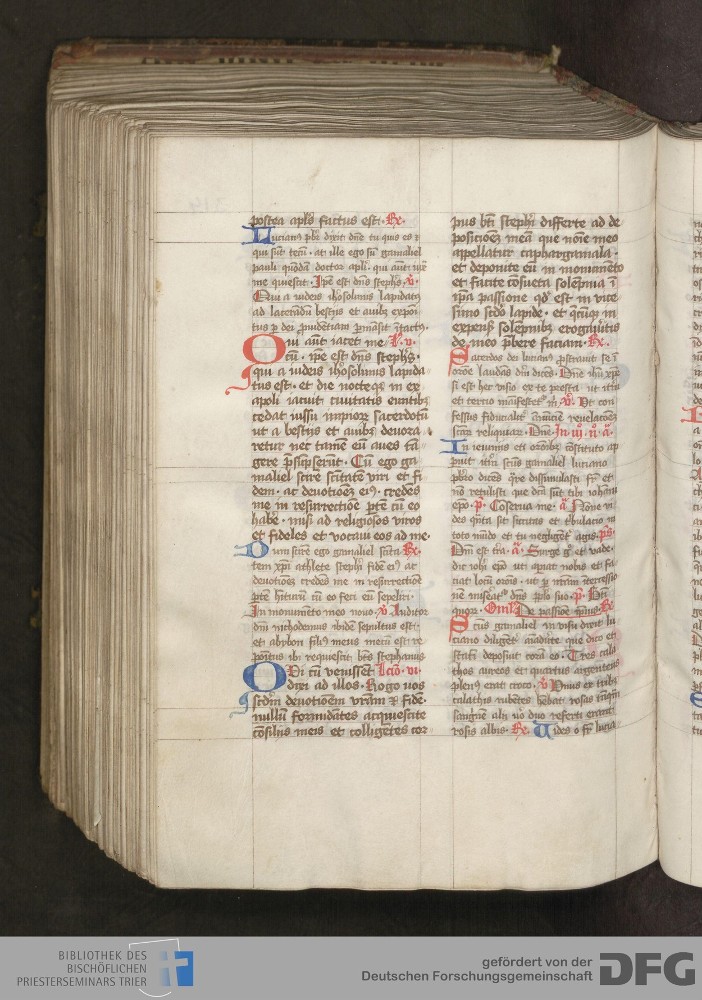 postea apls factus est· Rx·
Lucianus pbr dixit dne tu quis es
qui sūt tecū· at ille ego sū gamaliel
pauli quōdā doctor apli· qui aūt
me quiescit· Ipe est dns stephs· v·
Qui a iudeis ihosolimis lapidatꝫ
ad laceradū bestiis et auibꝫ
tus p dei pudentiam pmāsit itactꝫ·
Qui aūt iacet me L· v·
cū· ipe est dns stephs·
qui a iudeis ihosolimis lapida
tus est· et die nocteqꝫ in ex
apoli iacuit ciuitatis euntibꝫ
cedar iussu impiorꝫ sacerdotū
ut a bestiis et auibꝫ deuora
retur nec tamē eū aues ta
gere psūpserūt· Cū ego ga
maliel scirē scitatē viri et fi
dem· ac deuotioēs eiꝰ· credēs
me in resurrectiōe ptē cū eo
habē· misi ad religiosos viros
et fideles et vocaui eos ad me·
Dum scirē ego gamaliel scita Rx·
tem xpi athlete stephi fidē eiꝰ ac
deuotioēs credēs me in resurrectiōe
ptē hiturū cū eo feci eū sepeliri·
In monumēto meo nouo· v· Auditor
dni nichodemus ibidē sepultus est·
et abybon filiꝰ meus mecū est re
positus ibi requiescit bts stephanus
Qui cū venisset Lcio· vi·
dixi ad illos· Rogo uos
scdm deuotioem vram et fidē·
nullū formidātes acquiescite
cōsiliis meis et colligētes cor
pus bti stephi differte ad de
positioēs meā que noīe meo
appellatur caphargamala·
et deponite eū in monumēto
et facite cōsueta solēpnia ī
ipā passione qd est in vice
simo scdo lapide· et qcūqꝫ in
expensis solēpnibꝫ erogauitis
de meo pbere faciam· Rx·
Sacerdos dei lucianꝰ pstrauit se ī
orōe laudās dm dicēs· Dne ihu xpe
si est hec visio ex te presta ut itū
et tercio maīfestetꝰ m· v· Vt con
fessus fiducialit āniciē reuelatōes
scāꝫ reliquiarꝫ· Dne· In· iii· n̄· a·
In ieiuniis et orōibꝫ cōstituto ap
puit itm scūs gamaliel luciano
pbro dicēs qre dissimulasti fr et
nō retulisti que dca sūt tibi iohāni
epo· p· Coserua me· a· Nōne vi
des quāta sit siccitas et tbulacio in
toto mūdo et tu negligētꝰ agis· ps·
Dm est tra· a· Surge gꝰ et vade·
dic iohi epo ut apiat nobis et fa
ciat locū orōis· ut p nram itercessio
nē miseatꝰ dns plo suo· p· Bti
quorꝫ· De passioē Rx·
Scūs gamaliel in visu dixit lu
ciano diligēt audite que dico et
statī deposuit corā eo· Tres cala
thos aureos et quartus argenteus
plenꝰ erat croco· v· Vnus ex tribꝫ
calathis rubētes hēbat rosas tāqm
sanguē alii uo duo referti erant
rosis albis· Rx· Vides o fr lucia

BIBLIOTHEK DES
BISCHÖFLICHEN
PRIESTERSEMINARS TRIER
gefördert von der
Deutschen Forschungsgemeinschaft
DFG